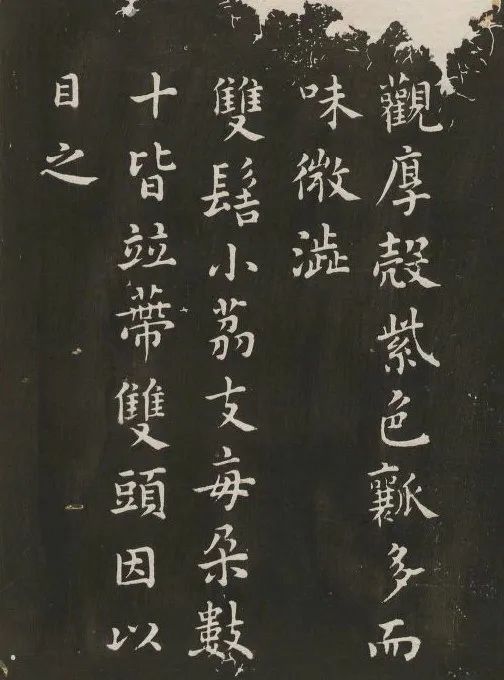 觀厚殼紫色瓤多而
味微澁
雙髻小荔支每朵數
十皆並蔕雙頭因以
目之